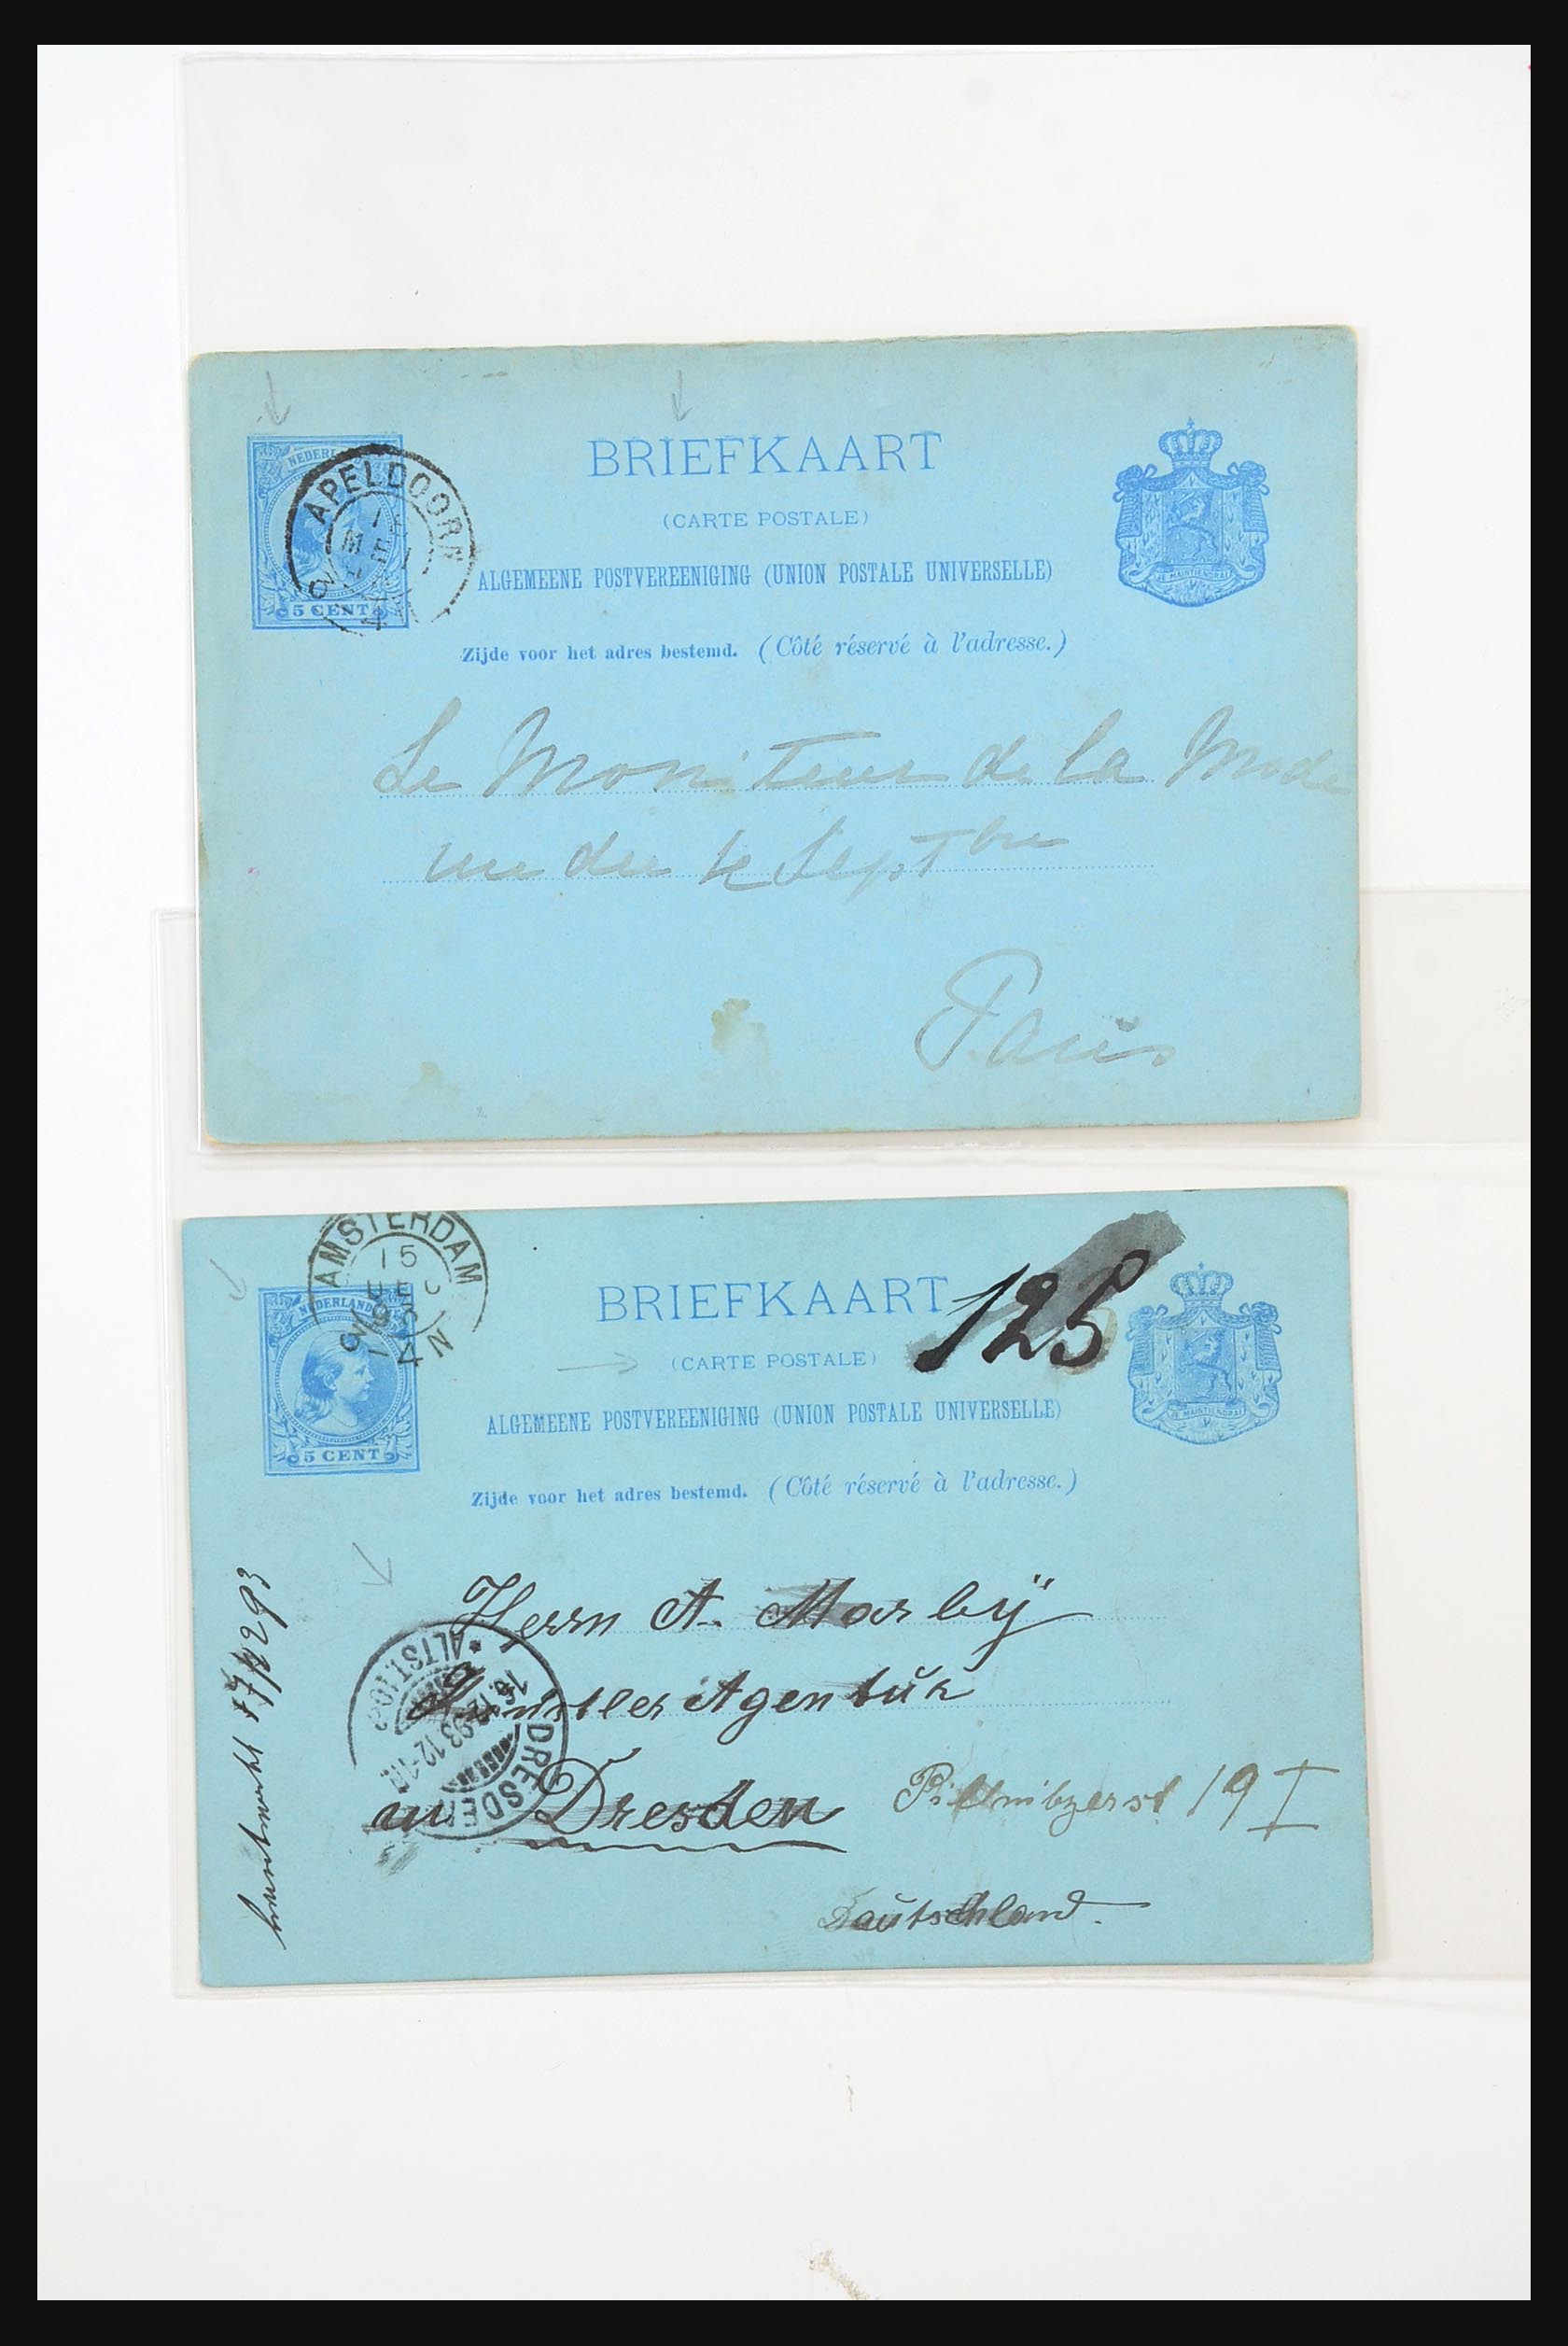 BRIEFKAART
(CARTE POSTALE)
ALGEMEENE POSTVEREENIGING (UNION POSTALE UNIVERSELLE)
Zijde voor het adres bestemd. (Côté réservé à l'adresse.)
NEDERLAND
5 CENT
APELDOORN
JE MAINTIENDRAI
Le Moniteur de la Mode
rue du 4 Septbre
Paris
AMSTERDAM
15
DEC
93
4 N
NEDERLAND
5 CENT
BRIEFKAART
125
(CARTE POSTALE)
ALGEMEENE POSTVEREENIGING (UNION POSTALE UNIVERSELLE)
JE MAINTIENDRAI
Zijde voor het adres bestemd. (Côté réservé à l'adresse.)
Herrn A. Marbÿ
Künstler Agentur
in Dresden Pillnitzerst 19 I
Deutschland.
DRESDEN
* ALTST.
16.12.93.12-1